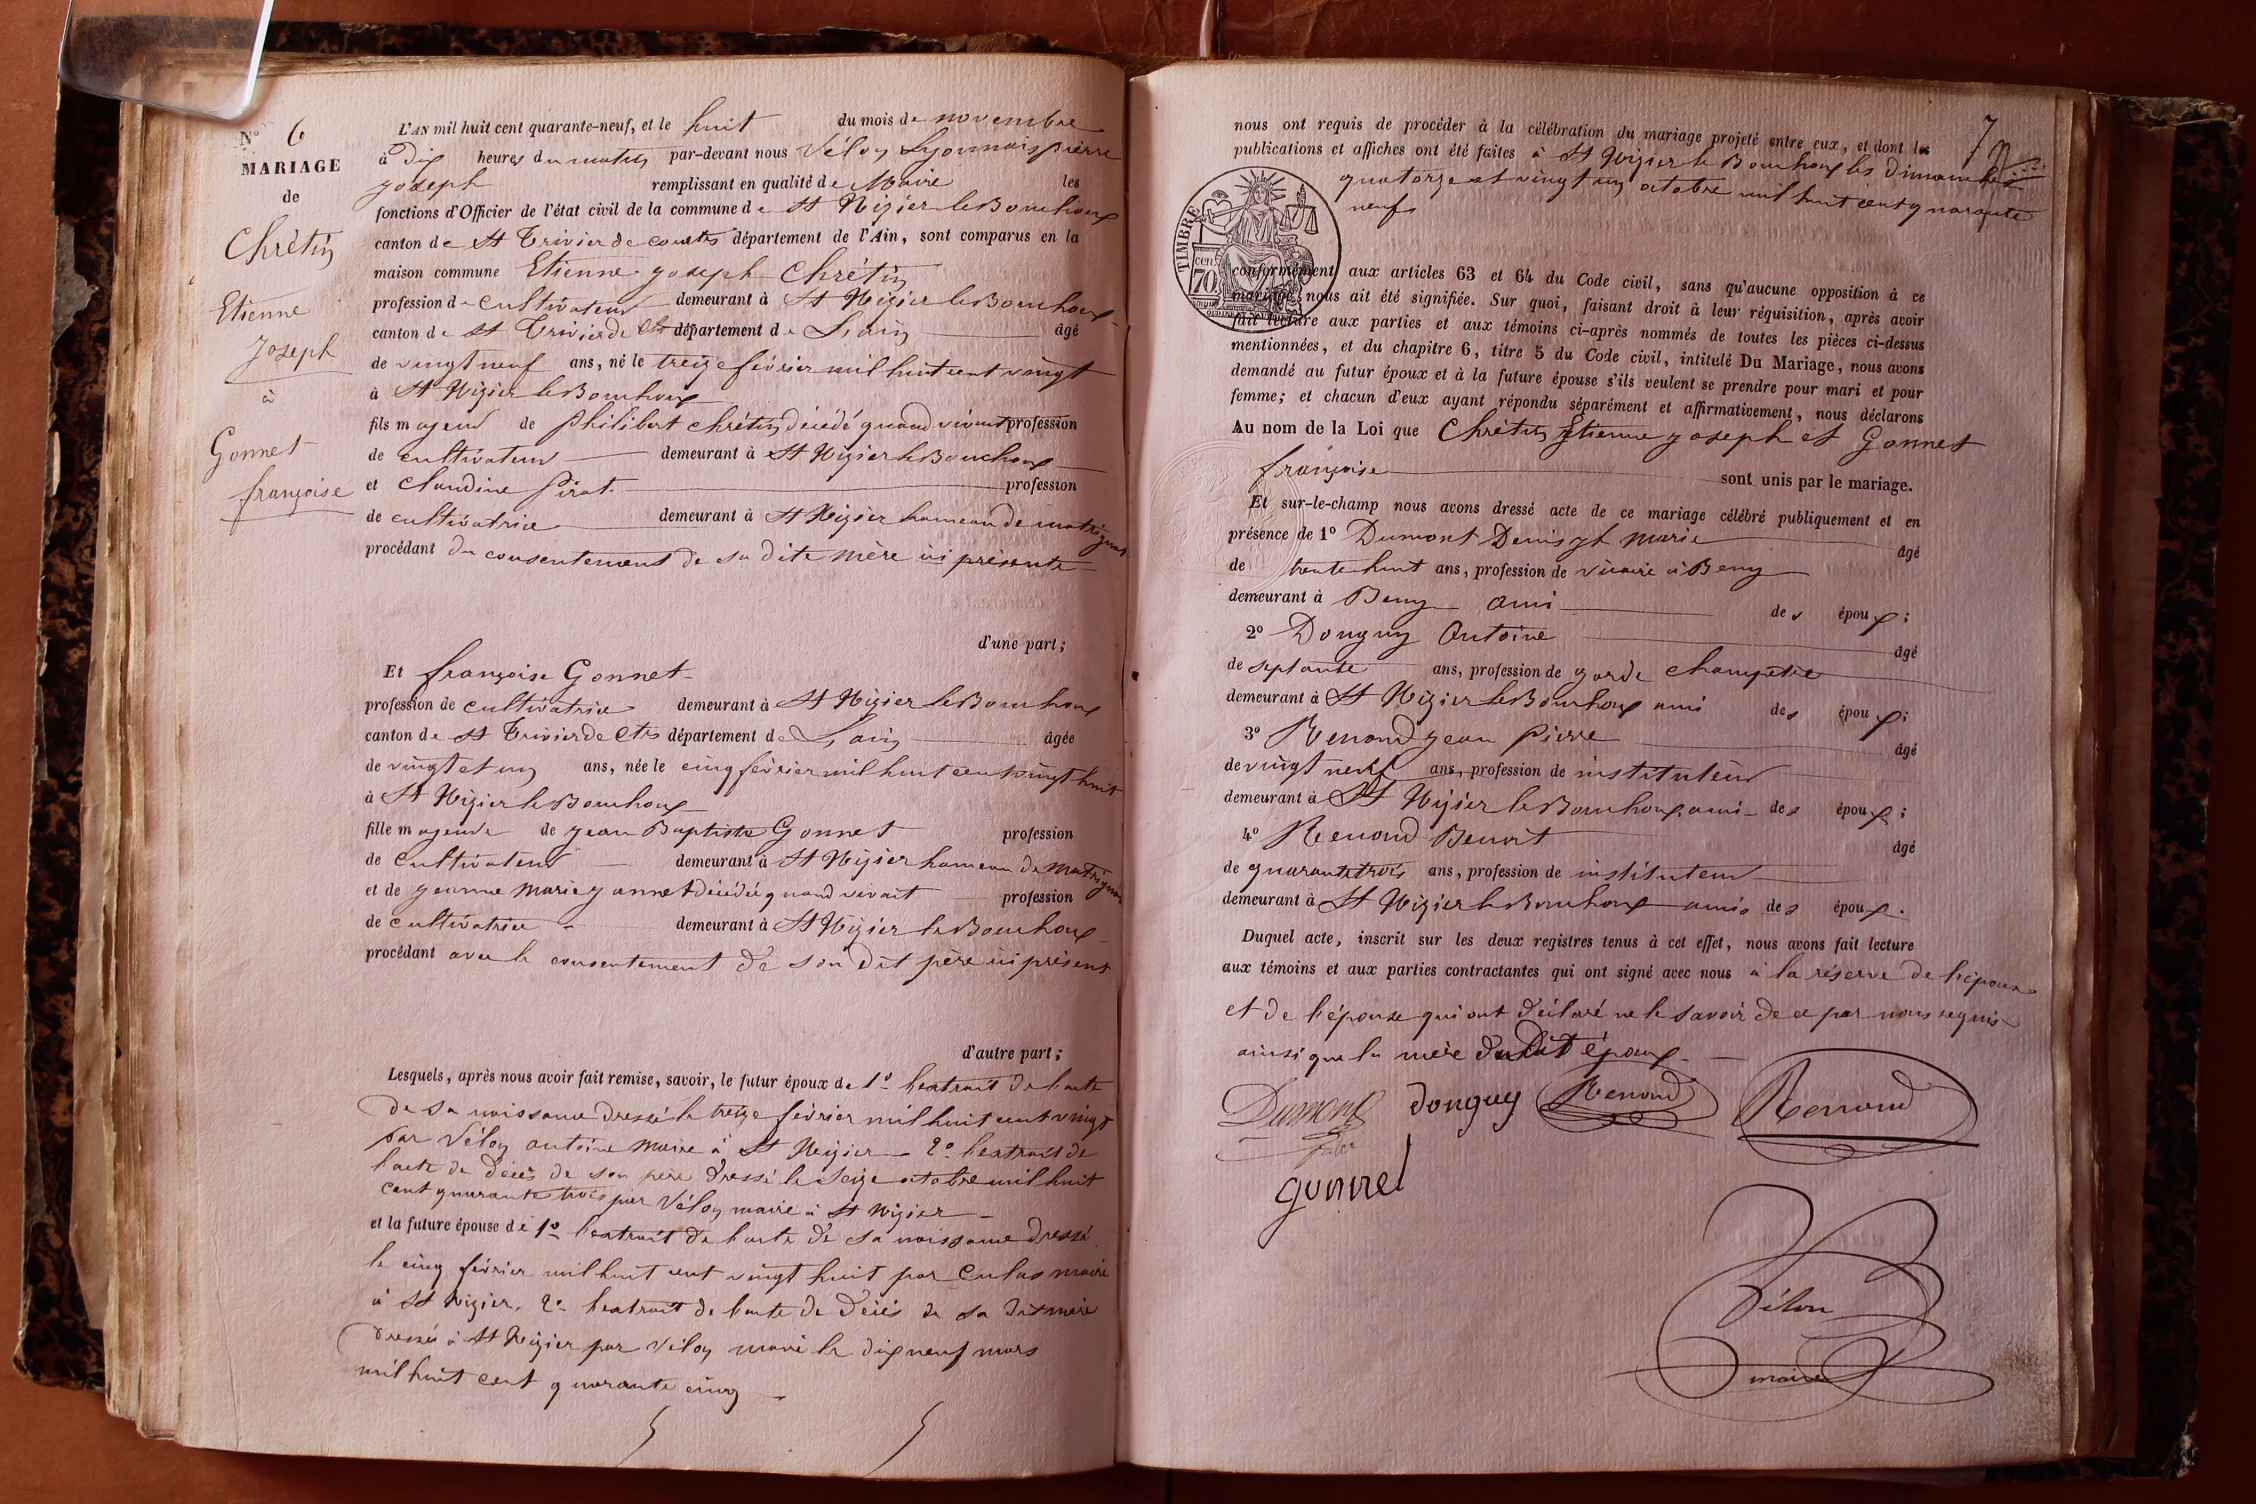 N° 6
MARIAGE
de
Chrétin
Etienne
Joseph
à
Gonnet
françoise
L'AN mil huit cent quarante-neuf, et le huit du mois de novembre
à dix heures du matin par-devant nous Vélon Lyonnais pierre
joseph remplissant en qualité de Maire les
fonctions d'Officier de l'état civil de la commune de St Nizier le Bouchoux
canton de St Trivier de courtes département de l'Ain, sont comparus en la
maison commune Etienne joseph Chrétin
profession de cultivateur demeurant à St Nizier le Bouchoux
canton de St Trivier de Ctes département de L'ain âgé
de vingt neuf ans, né le treize février mil huit cent vingt
à St Nizier le Bouchoux
fils majeur de Philibert chrétin décédé quand vivait profession
de cultivateur demeurant à St Nizier le Bouchoux
et Claudine Pirat profession
de cultivatrice demeurant à St Nizier hameau de matrignat
procédant du consentement de sa dite mère ici présente
d'une part;
Et françoise Gonnet
profession de cultivatrice demeurant à St Nizier le Bouchoux
canton de St Trivier de Ctes département de L'ain âgée
de vingt et un ans, née le cinq février mil huit cent vingt huit
à St Nizier le Bouchoux
fille majeure de jean Baptiste Gonnet profession
de cultivateur demeurant à St Nizier hameau de Matrignat
et de jeanne Marie jannet décédée quand vivait profession
de cultivatrice demeurant à St Nizier le Bouchoux
procédant avec le consentement de son dit père ici présent
d'autre part;
Lesquels, après nous avoir fait remise, savoir, le futur époux de 1° l'extrait de l'acte
de sa naissance dressé le treize février mil huit cent vingt
par Vélon antoine maire à St Nizier 2° l'extrait de
l'acte de décès de son père dressé le seize octobre mil huit
cent quarante trois par Vélon maire à St Nizier
et la future épouse de 1° l'extrait de l'acte de sa naissance dressé
le cinq février mil huit cent vingt huit par Culas maire
à St Nizier, 2° l'extrait de l'acte de décès de sa dite mère
dressé à St Nizier par Vélon maire le dix neuf mars
mil huit cent quarante cinq
7
nous ont requis de procéder à la célébration du mariage projeté entre eux, et dont les
publications et affiches ont été faites à St Nizier le Bouchoux les dimanches
quatorze et vingt un octobre mil huit cent quarante
neuf
TIMBRE
70
conformément aux articles 63 et 64 du Code civil, sans qu'aucune opposition à ce
mariage nous ait été signifiée. Sur quoi, faisant droit à leur réquisition, après avoir
fait lecture aux parties et aux témoins ci-après nommés de toutes les pièces ci-dessus
mentionnées, et du chapitre 6, titre 5 du Code civil, intitulé Du Mariage, nous avons
demandé au futur époux et à la future épouse s'ils veulent se prendre pour mari et pour
femme; et chacun d'eux ayant répondu séparément et affirmativement, nous déclarons
Au nom de la Loi que Chrétin Etienne joseph et Gonnet
françoise sont unis par le mariage.
Et sur-le-champ nous avons dressé acte de ce mariage célébré publiquement et en
présence de 1° Dumont Denis jh marie âgé
de trente huit ans, profession de vicaire à Beny
demeurant à Beny ami des époux;
2° Donguy Antoine âgé
de septante ans, profession de garde champêtre
demeurant à St Nizier le Bouchoux ami des époux;
3° Renaud jean pierre âgé
de vingt neuf ans, profession de instituteur
demeurant à St Nizier le Bouchoux ami des époux;
4° Renaud Benoit âgé
de quarante trois ans, profession de instituteur
demeurant à St Nizier le Bouchoux amis des époux.
Duquel acte, inscrit sur les deux registres tenus à cet effet, nous avons fait lecture
aux témoins et aux parties contractantes qui ont signé avec nous à la réserve de l'époux
et de l'épouse qui ont déclaré ne le savoir de ce par nous requis
ainsi que la mère dudit époux
Dumont donguy Renaud Renaud
gonnet
Vélon
maire